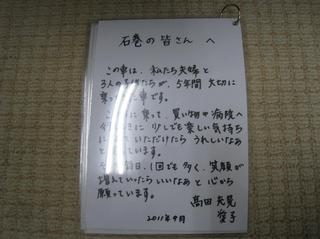 石巻の皆さん へ
この車は、私たち夫婦と
3人の子供たちが、5年間 大切に
乗って 車です。
この車に 乗って、買い物や 病院へ
行く ときに 少しでも 楽しい 気持ち
に っていただけたら うれしいなあ
と っています。
毎日、1回でも 多く、笑顔が
増えていったら いいなあ と 心から
願っています。
髙田
2011年9月